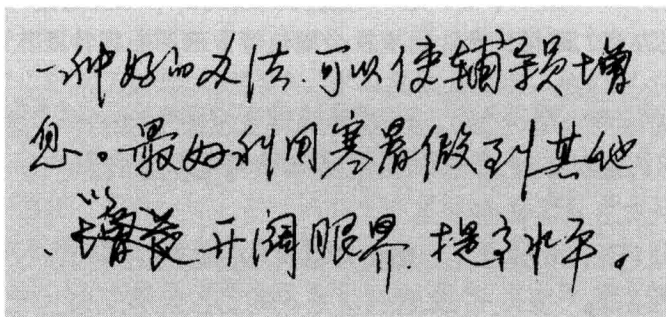 一种好的办法.可以使辅导员增
息。最好利用寒暑假到其他
、开阔眼界.提高水平。